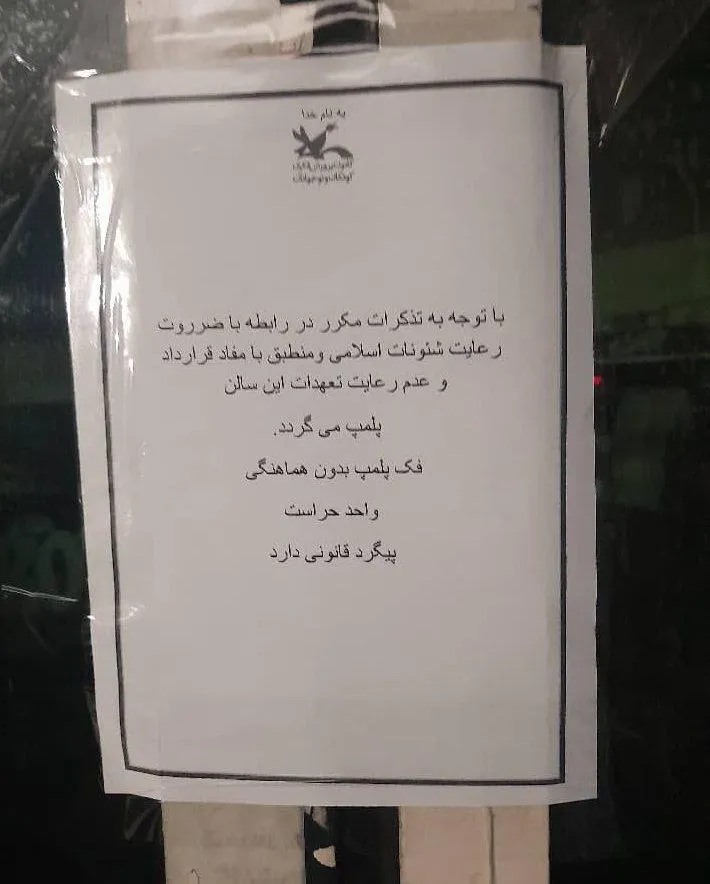 به نام خدا
کانون پرورش فکری
کودکان و نوجوانان
با توجه به تذکرات مکرر در رابطه با ضرروت
رعایت شئونات اسلامی ومنطبق با مفاد قرارداد
و عدم رعایت تعهدات این سالن
پلمپ می گردد.
فک پلمپ بدون هماهنگی
واحد حراست
پیگرد قانونی دارد